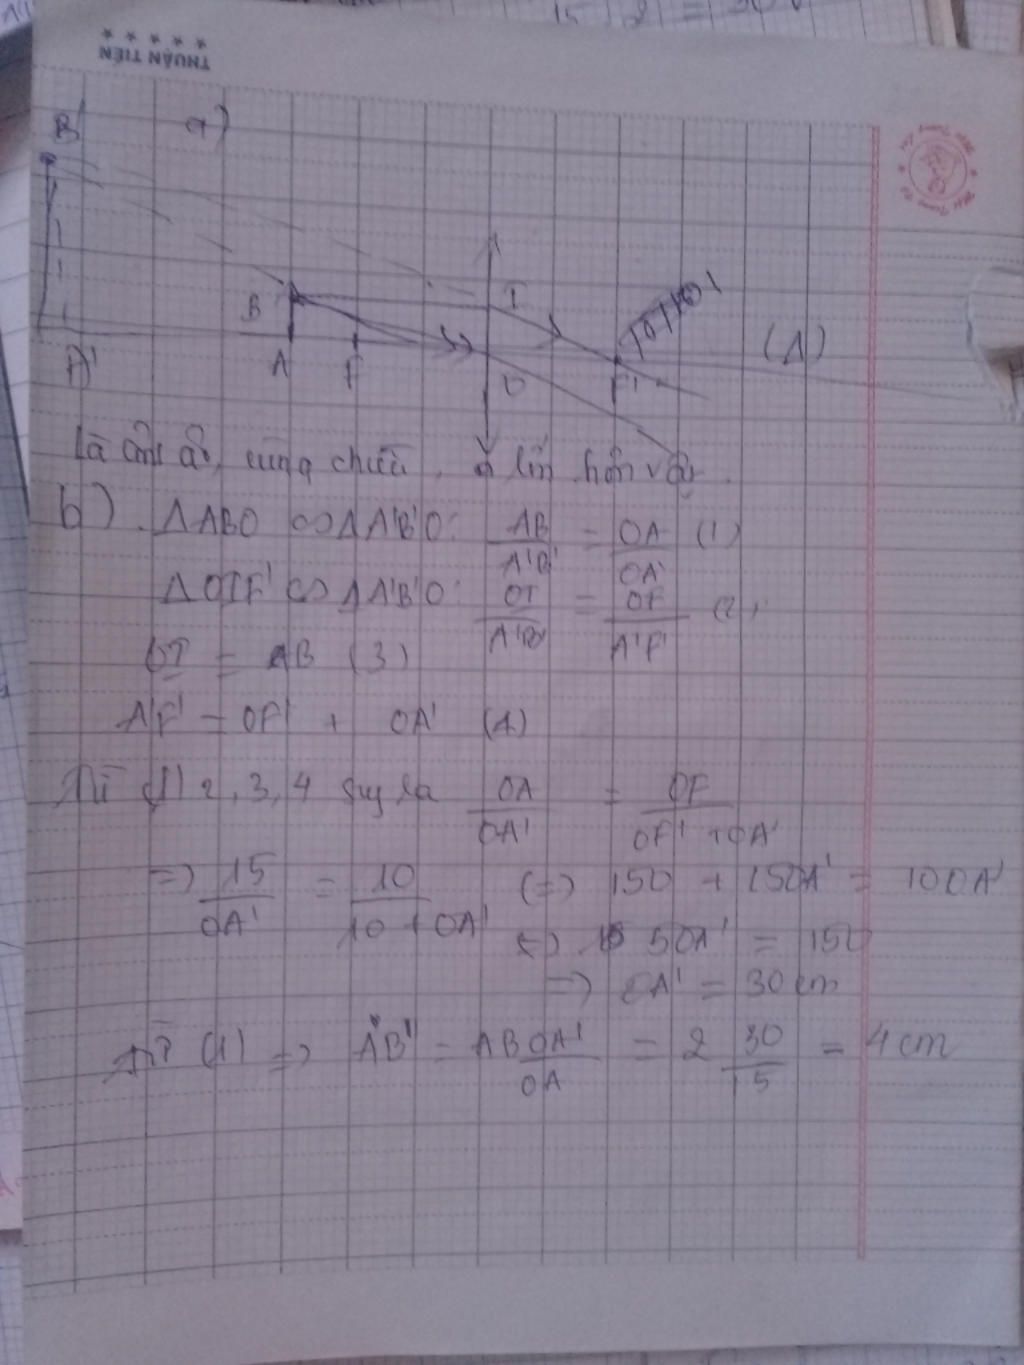 THUẬN TIẾN
B'
a)
B
I
(Δ)
A'
A
F
O
F'
là ảnh ảo, cùng chiều, lớn hơn vật.
b). ΔABO ∽ ΔA'B'O: AB/A'B' = OA/OA' (1)
ΔOIF' ∽ ΔA'B'O: OI/A'B' = OF/A'F' (2)
OI = AB (3)
A'F' = OF' + OA' (4)
Từ (1) 2, 3, 4 suy ra OA/OA' = OF/OF' + OA'
=> 15/OA' = 10/10 + OA' (=> 150 + 15OA' = 10OA'
<=> 5OA' = 150
=> OA' = 30 cm
Từ (1) => A'B' = AB OA'/OA = 2 30/15 = 4 cm